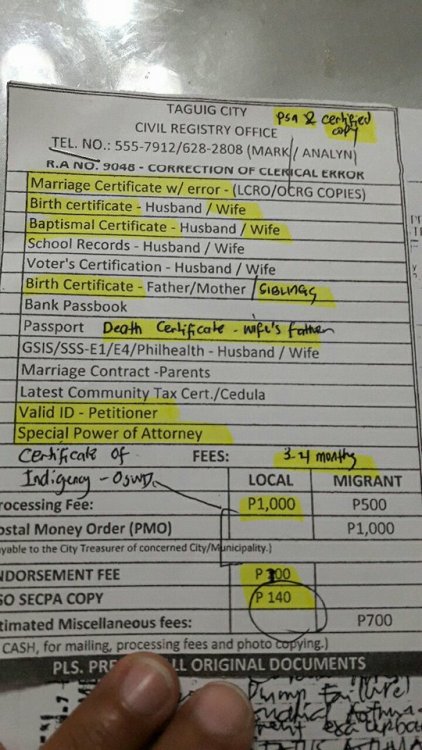 TAGUIG CITY
psa & certified
copy
CIVIL REGISTRY OFFICE
TEL. NO.: 555-7912/628-2808 (MARK/ ANALYN)
R.A NO. 9048 - CORRECTION OF CLERICAL ERROR
Marriage Certificate w/ error - (LCRO/OCRG COPIES)
Birth certificate - Husband / Wife
Baptismal Certificate - Husband / Wife
School Records - Husband / Wife
Voter's Certification - Husband / Wife
Birth Certificate - Father/Mother / SIBLINGS
Bank Passbook
Passport Death Certificate - wife's father
GSIS/SSS-E1/E4/Philhealth - Husband / Wife
Marriage Contract -Parents
Latest Community Tax Cert./Cedula
Valid ID - Petitioner
Special Power of Attorney
Certificate of FEES: 3-4 months
Indigency - OSWD. LOCAL MIGRANT
rocessing Fee: P1,000 P500
ostal Money Order (PMO) P1,000
yable to the City Treasurer of concerned City/Municipality.)
NDORSEMENT FEE P 00
SO SECPA COPY P 140
stimated Miscellaneous fees: P700
CASH, for mailing, processing fees and photo copying.)
PLS. PRE LL ORIGINAL DOCUMENTS
Pump failure